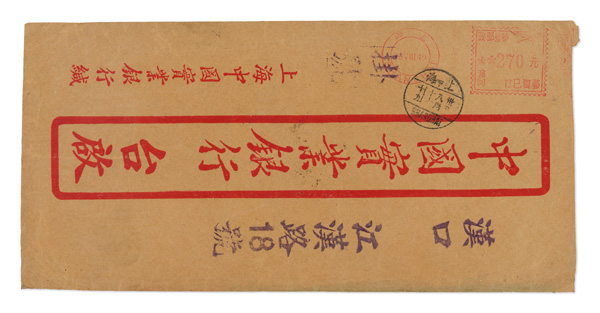 漢口 江漢路18號
中國實業銀行 台啟
上海中國實業銀行緘
掛號
上海
370